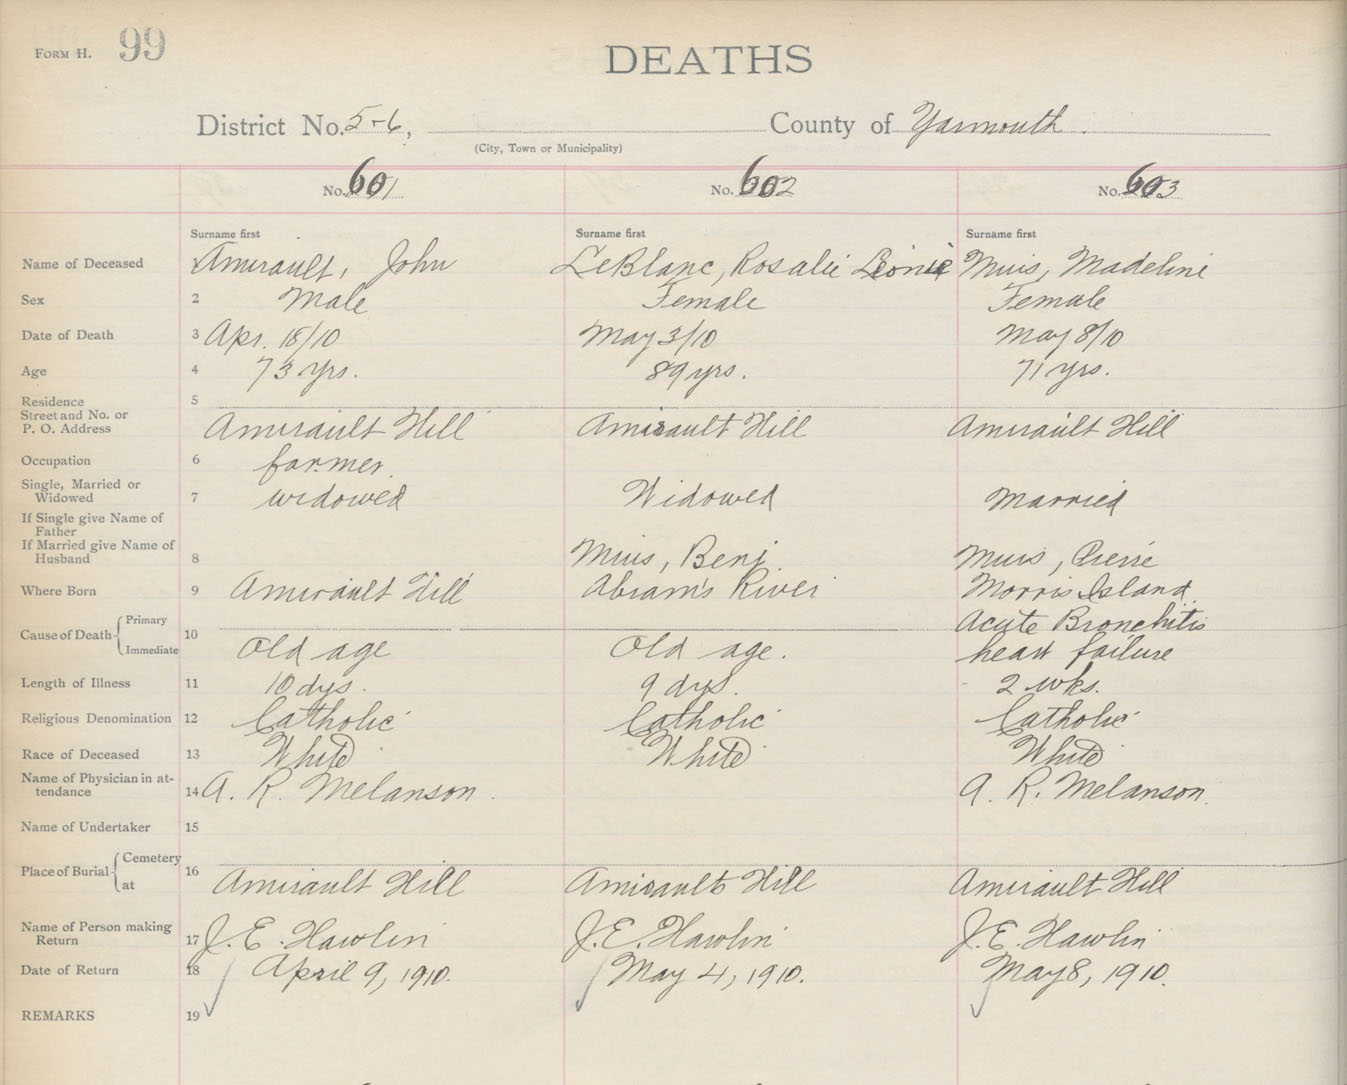 FORM H. 99
DEATHS
District No. 5-6, County of Yarmouth.
(City, Town or Municipality)
No. 601 No. 602 No. 603
Surname first Surname first Surname first
Name of Deceased 1 Amirault, John LeBlanc, Rosalie Leonie Muis, Madeline
Sex 2 Male Female Female
Date of Death 3 Apr. 18/10 May 3/10 May 8/10
Age 4 73 yrs. 89 yrs. 71 yrs.
Residence 5
Street and No. or
P. O. Address Amirault Hill Amirault Hill Amirault Hill
Occupation 6 farmer
Single, Married or
Widowed 7 widowed Widowed Married
If Single give Name of
Father
If Married give Name of
Husband 8 Muis, Benj. Muis, Pierre
Where Born 9 Amirault Hill Abram's River Morris Island
Cause of Death Primary 10 Acute Bronchitis
Immediate Old age Old age. heart failure
Length of Illness 11 10 dys. 9 dys. 2 wks.
Religious Denomination 12 Catholic Catholic Catholic
Race of Deceased 13 White White White
Name of Physician in at-
tendance 14 A. R. Melanson. A. R. Melanson.
Name of Undertaker 15
Place of Burial Cemetery 16
at Amirault Hill Amirault Hill Amirault Hill
Name of Person making
Return 17 J. E. Hawlin J. E. Hawlin J. E. Hawlin
Date of Return 18 April 9, 1910. May 4, 1910. May 8, 1910.
REMARKS 19